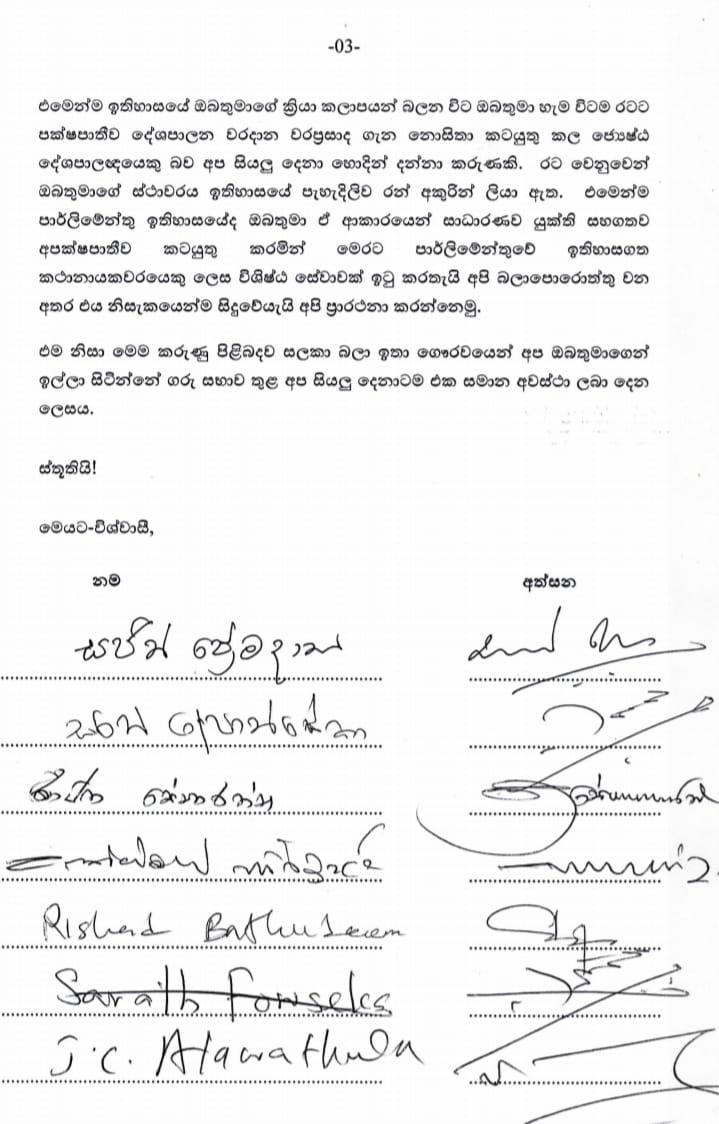 -03-
එමෙන්ම ඉතිහාසයේ ඔබතුමාගේ ක්‍රියා කලාපයන් බලන විට ඔබතුමා හැම විටම රටට
පක්ෂපාතීව දේශපාලන වරදාන වරප්‍රසාද ගැන නොසිතා කටයුතු කල ජ්‍යෙෂ්ඨ
දේශපාලඥයෙකු බව අප සියලු දෙනා හොදින් දන්නා කරුණකි. රට වෙනුවෙන්
ඔබතුමාගේ ස්ථාවරය ඉතිහාසයේ පැහැදිලිව රන් අකුරින් ලියා ඇත. එමෙන්ම
පාර්ලිමේන්තු ඉතිහාසයේද ඔබතුමා ඒ ආකාරයෙන් සාධාරණව යුක්ති සහගතව
අපක්ෂපාතීව කටයුතු කරමින් මෙරට පාර්ලිමේන්තුවේ ඉතිහාසගත
කථානායකවරයෙකු ලෙස විශිෂ්ඨ සේවාවක් ඉටු කරතැයි අපි බලාපොරොත්තු වන
අතර එය නිසැකයෙන්ම සිදුවේයැයි අපි ප්‍රාරථනා කරන්නෙමු.
එම නිසා මෙම කරුණු පිළිබදව සලකා බලා ඉතා ගෞරවයෙන් අප ඔබතුමාගෙන්
ඉල්ලා සිටින්නේ ගරු සභාව තුළ අප සියලු දෙනාටම එක සමාන අවස්ථා ලබා දෙන
ලෙසය.
ස්තූතියි!
මෙයට-විශ්වාසී,
නම අත්සන
සජිත් ප්‍රේමදාස
සරත් ෆොන්සේකා
Rishad Bathiudeen
Sarath Fonseka
J.C. Alawathuwala